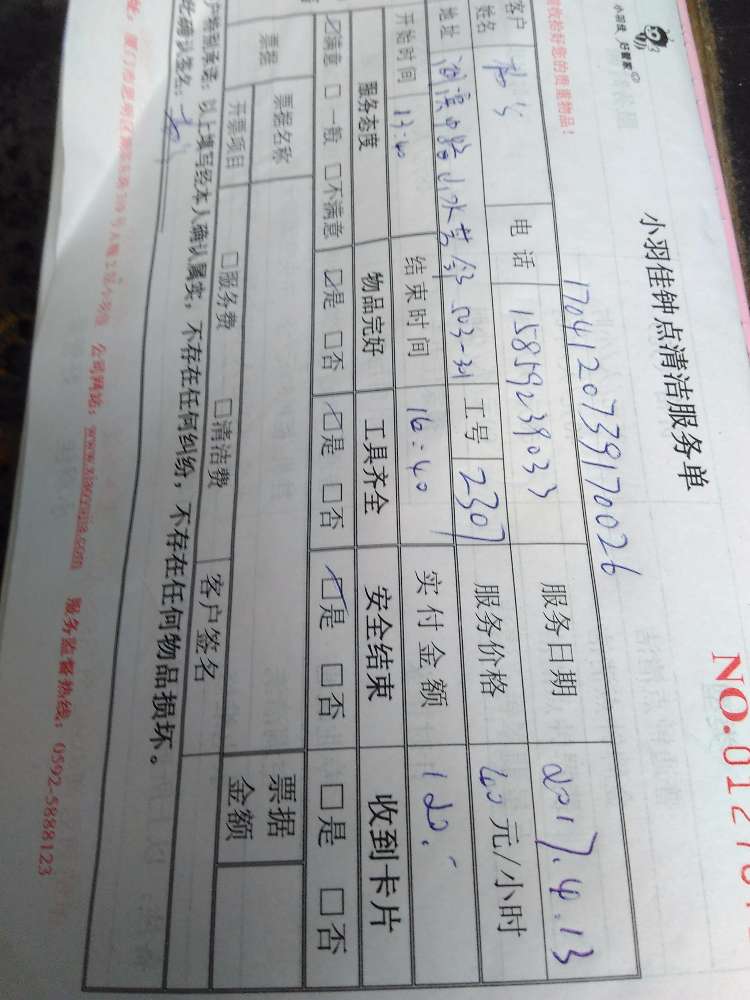 小羽佳 好管家
小羽佳钟点清洁服务单
NO.0127
收拾好您的贵重物品！
17041207339170026
客户姓名 电话 15859239033 服务日期 2017.4.13
地址 工号 2307 服务价格 40元/小时
开始时间 13:40 结束时间 16:40 实付金额 120.-
服务态度 物品完好 工具齐全 安全结束 收到卡片
☑满意 □一般 □不满意 ☑是 □否 ☑是 □否 ☑是 □否 □是 □否
票据 票据名称 票据金额
开票项目 □服务费 □清洁费 客户签名
户特别承诺：以上填写经本人确认属实，不存在任何纠纷，不存在任何物品损坏。
确认签名：
公司网站：www.xiaoyujia.com 服务监督热线：0592-5888123